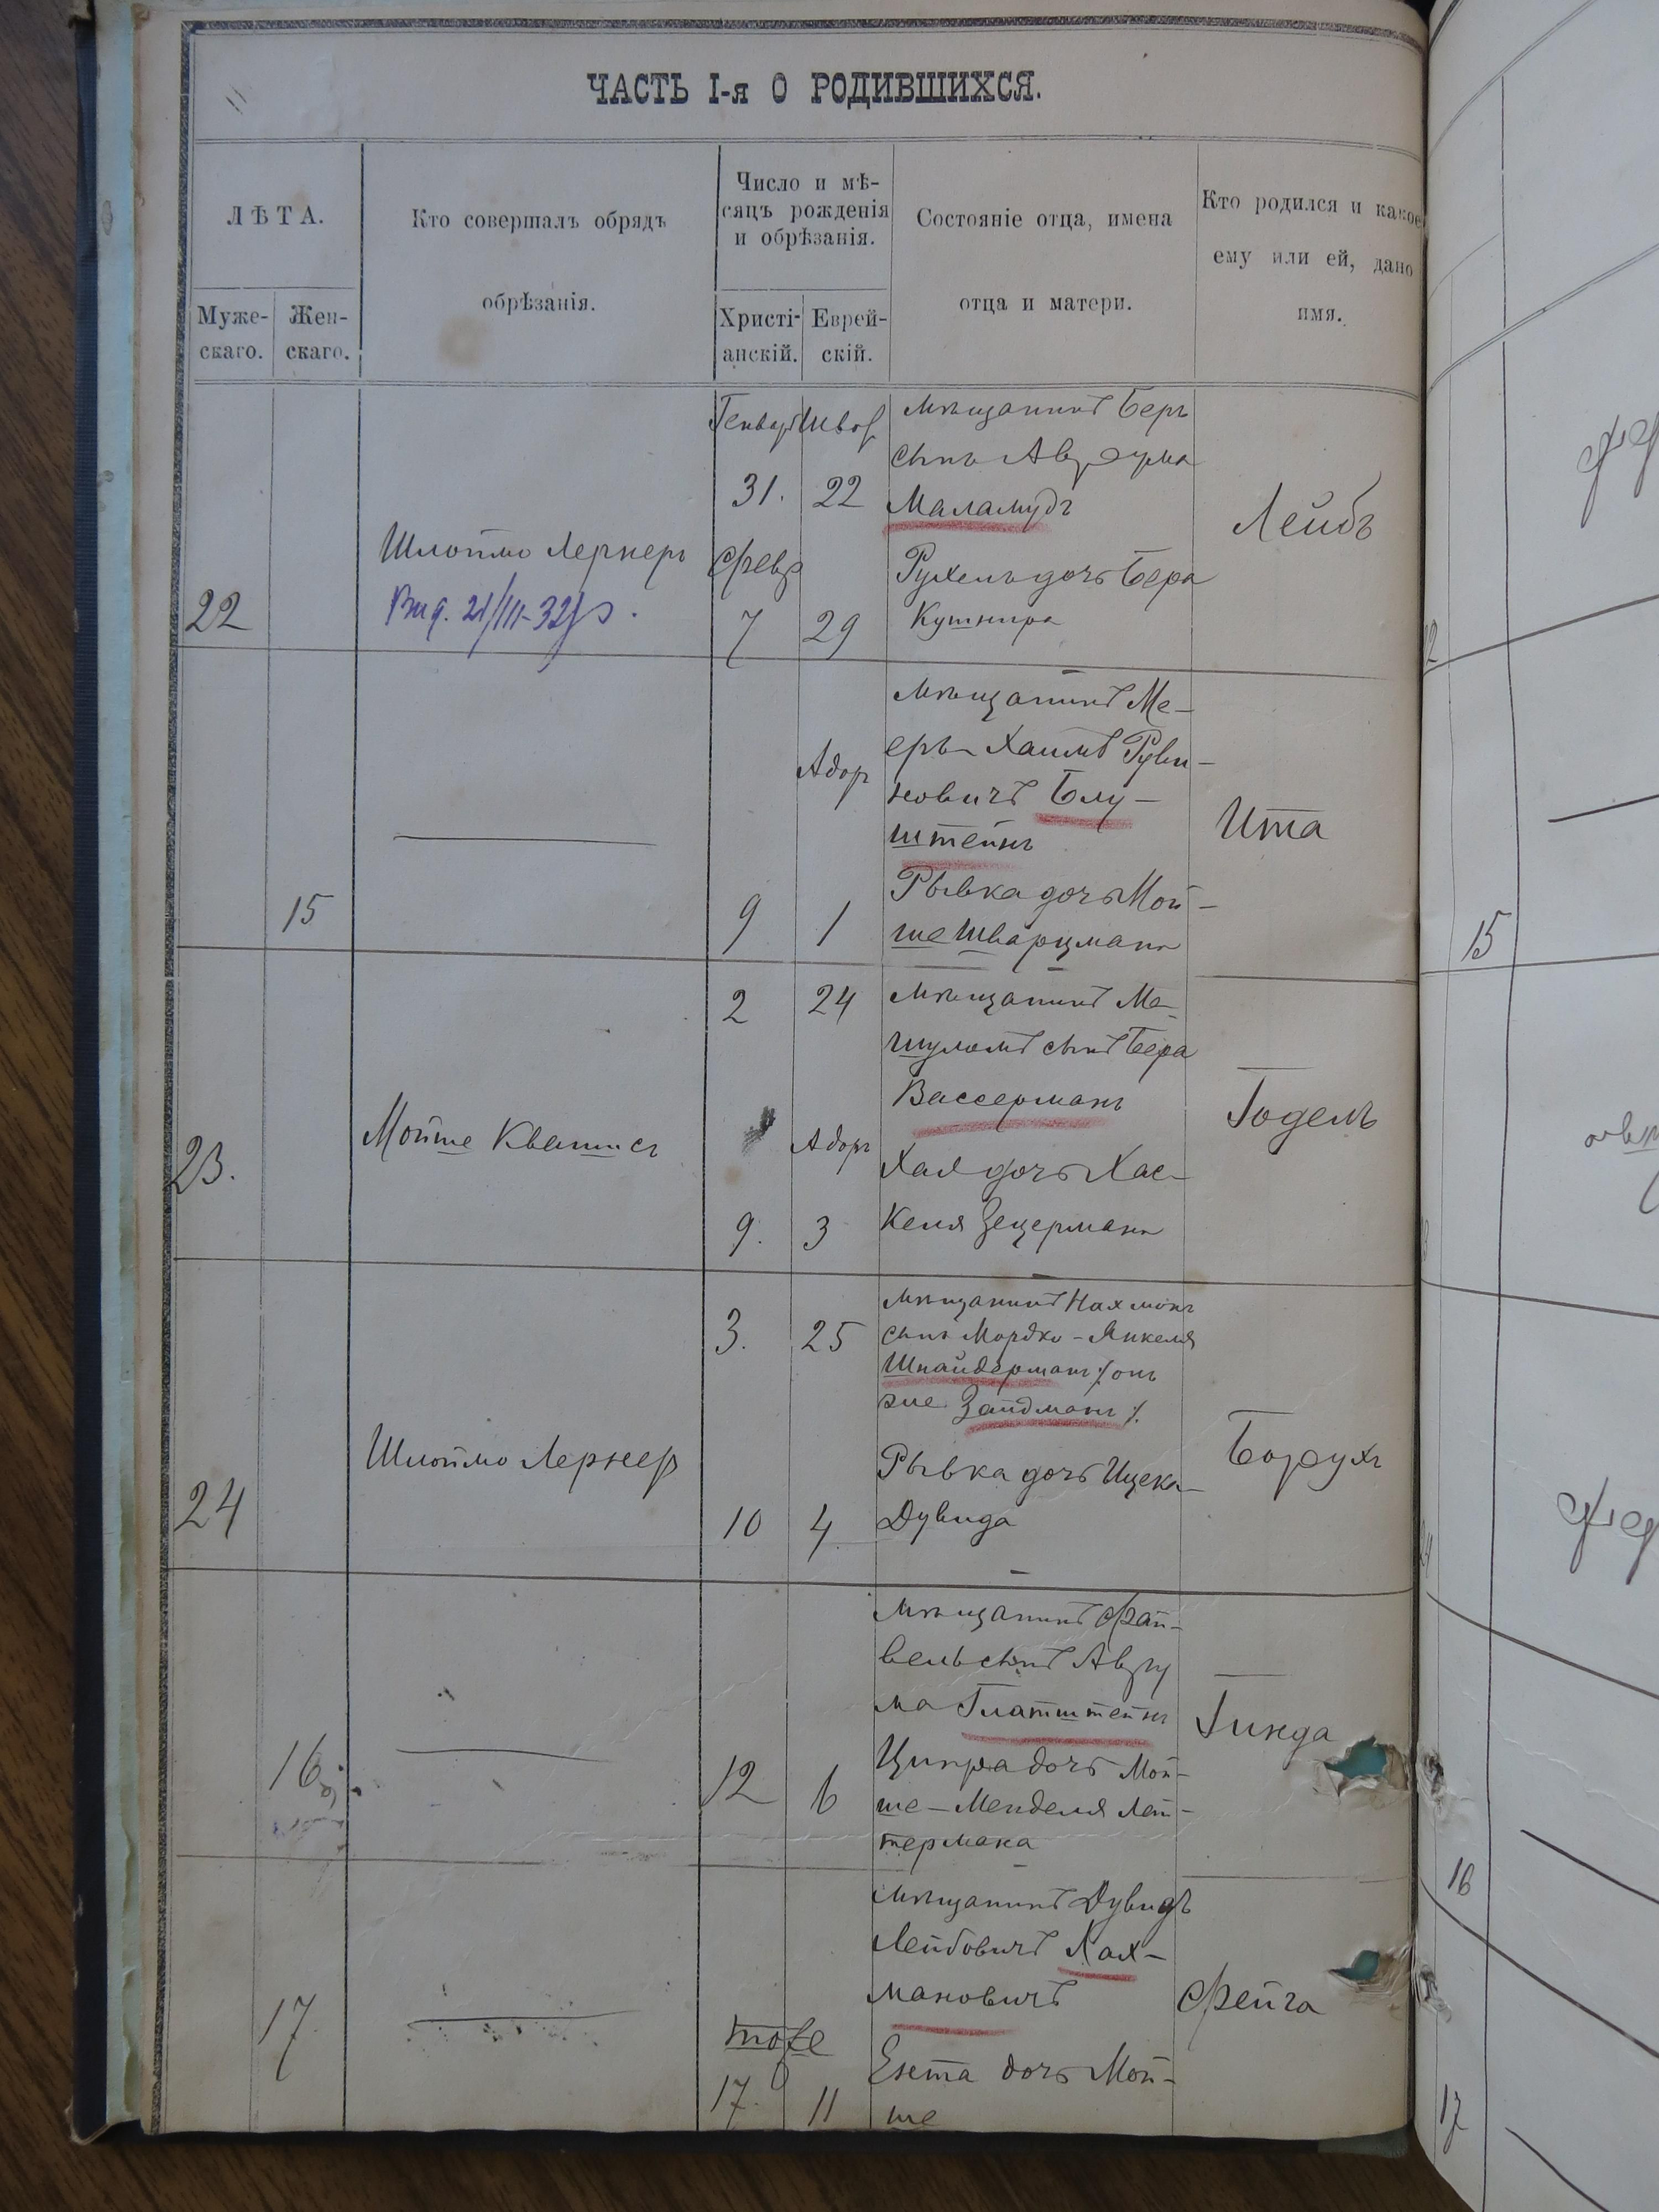 ЧАСТЬ I-я О РОДИВШИХСЯ.
ЛѢТА.
Муже-
скаго.
Жен-
скаго.
Кто совершалъ обрядъ
обрѣзанія.
Число и мѣ-
сяцъ рожденія
и обрѣзанія.
Христі-
анскій.
Еврей-
скій.
Состояніе отца, имена
отца и матери.
Кто родился и какое
ему или ей, дано
имя.
22
Шлоймо Лернеръ
Вид. 21/III-32
Генвар Шват
31. 22
Февр
7 29
Мѣщанинъ Беръ
сынъ Аврума
Маламудъ
Рухель дочь Бера
Кушнира
Лейбъ
15
Адор
9 1
Мѣщанинъ Ме-
еръ-Хаимъ Руви-
новичъ Блу-
штейнъ
Рывка дочь Мой-
ше Шварцманъ
Ита
23.
Мойше Квашисъ
2 24
Адоръ
9. 3
Мѣщанинъ Ме-
шуломъ сынъ Бера
Вассерманъ
Хая дочь Хас-
келя Зецерманъ
Годель
24
Шлоймо Лернер
3. 25
10 4
Мѣщанинъ Нахмонъ
сынъ Мордко-Янкеля
Шнайдерманъ /онъ
же Зайдманъ/.
Рывка дочь Ицека-
Дувида
Борухъ
16
12 6
Мѣщанинъ Фай-
вель сынъ Авру
ма Глатштейнъ
Ципра дочь Мой-
ше-Менделя Лей-
термана
Гинда
17
тоже
17. 11
Мѣщанинъ Дувидъ
Лейбовичъ Лах-
мановичъ
Ента дочь Мой-
ше
Фейга
15
16
17